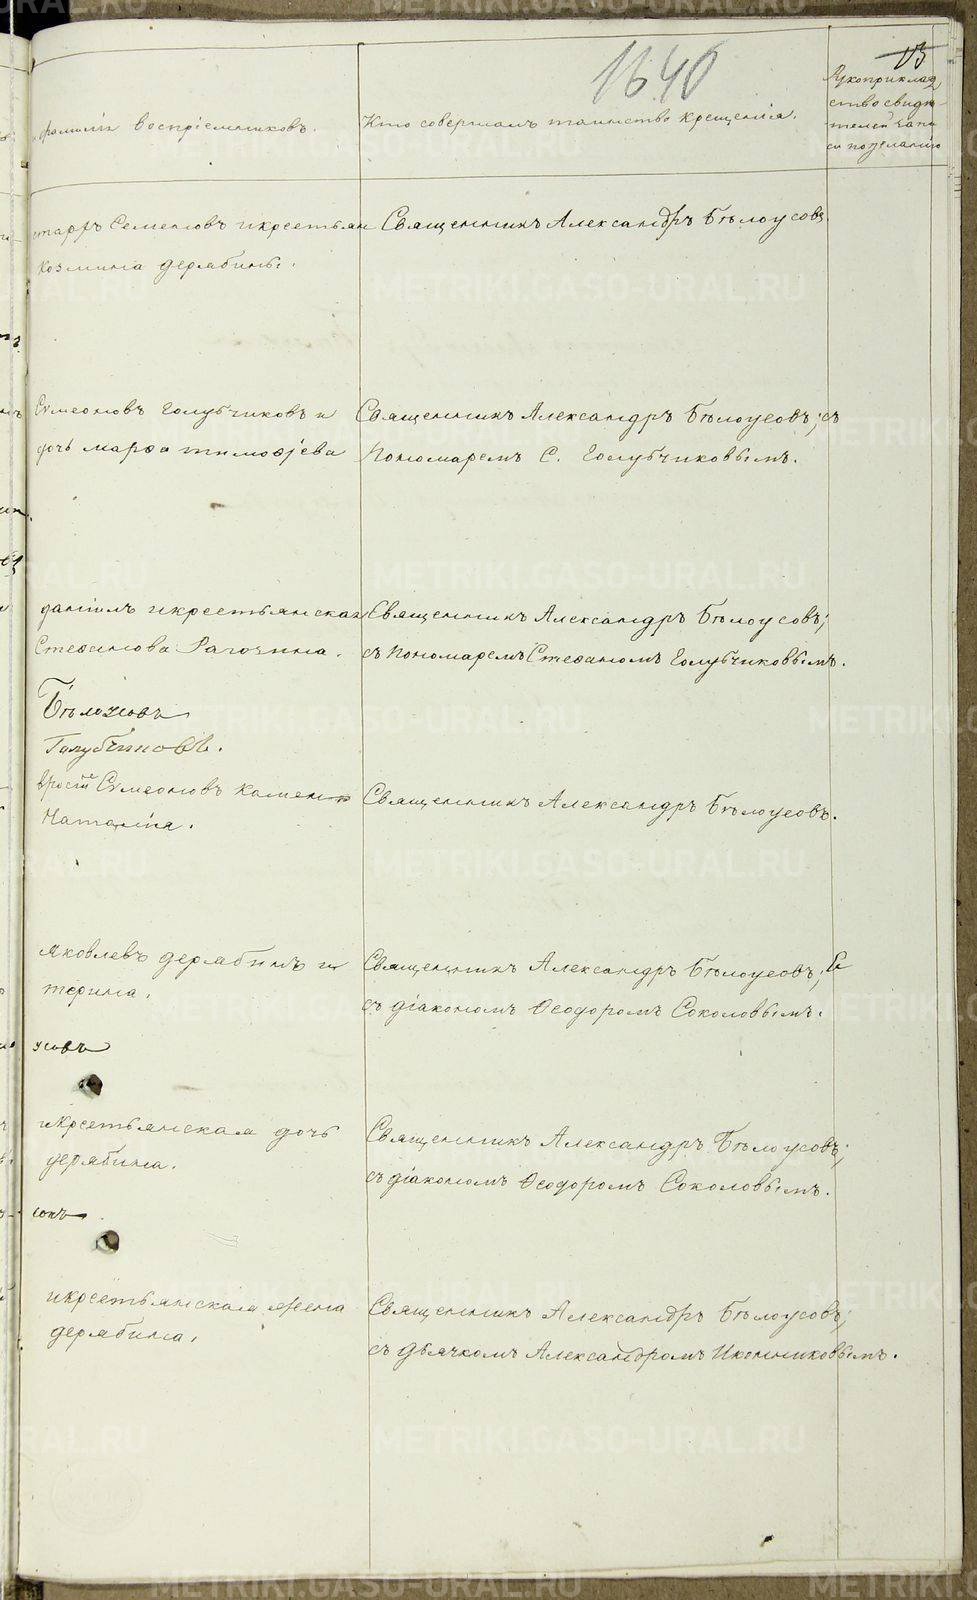 1640
фамиліи воспріемниковъ.
Кто совершалъ таинство крещенія.
Рукоприклад
ство свидѣ-
телей запи
си по желанію
Семеновъ икрестьян
Козмина Дерябины.
Священникъ Александръ Бѣлоусовъ.
Сѵмеоновъ Голубчиковъ и
дочь Марѳа Тимоѳѣева
Священникъ Александръ Бѣлоусовъ; съ
Пономаремъ С. Голубчиковымъ.
Даніилъ икрестьянская
Стеѳанова Рагочина.
Священникъ Александръ Бѣлоусовъ;
съ пономаремъ Стеѳаномъ Голубчиковымъ.
Бѣлоусовъ
Голубчиковъ.
Сѵмеоновъ Камен
Наталія.
Священникъ Александръ Бѣлоусовъ.
Яковлевъ Дерябинъ и
терина.
Священникъ Александръ Бѣлоусовъ;
съ діакономъ Ѳеодоромъ Соколовымъ.
усовъ
икрестьянская дочь
Дерябина.
Священникъ Александръ Бѣлоусовъ;
съ діакономъ Ѳеодоромъ Соколовымъ.
икрестьянская жена
Дерябина.
Священникъ Александръ Бѣлоусовъ;
съ дьячкомъ Александромъ Иконниковымъ.
METRIKI.GASO-URAL.RU